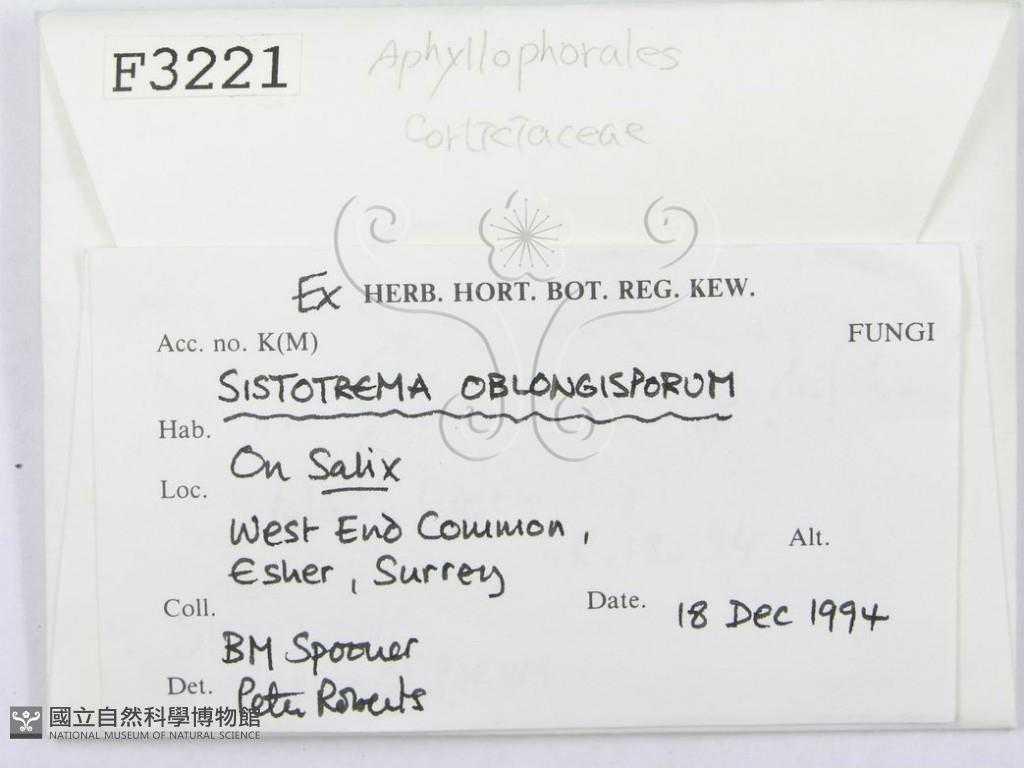 F3221
Aphyllophorales
Corticiaceae
Ex HERB. HORT. BOT. REG. KEW.
Acc. no. K(M)
FUNGI
SISTOTREMA OBLONGISPORUM
Hab.
On Salix
Loc.
West End Common,
Alt.
Esher, Surrey
Coll.
Date. 18 Dec 1994
BM Spooner
Det. Peter Roberts
國立自然科學博物館
NATIONAL MUSEUM OF NATURAL SCIENCE